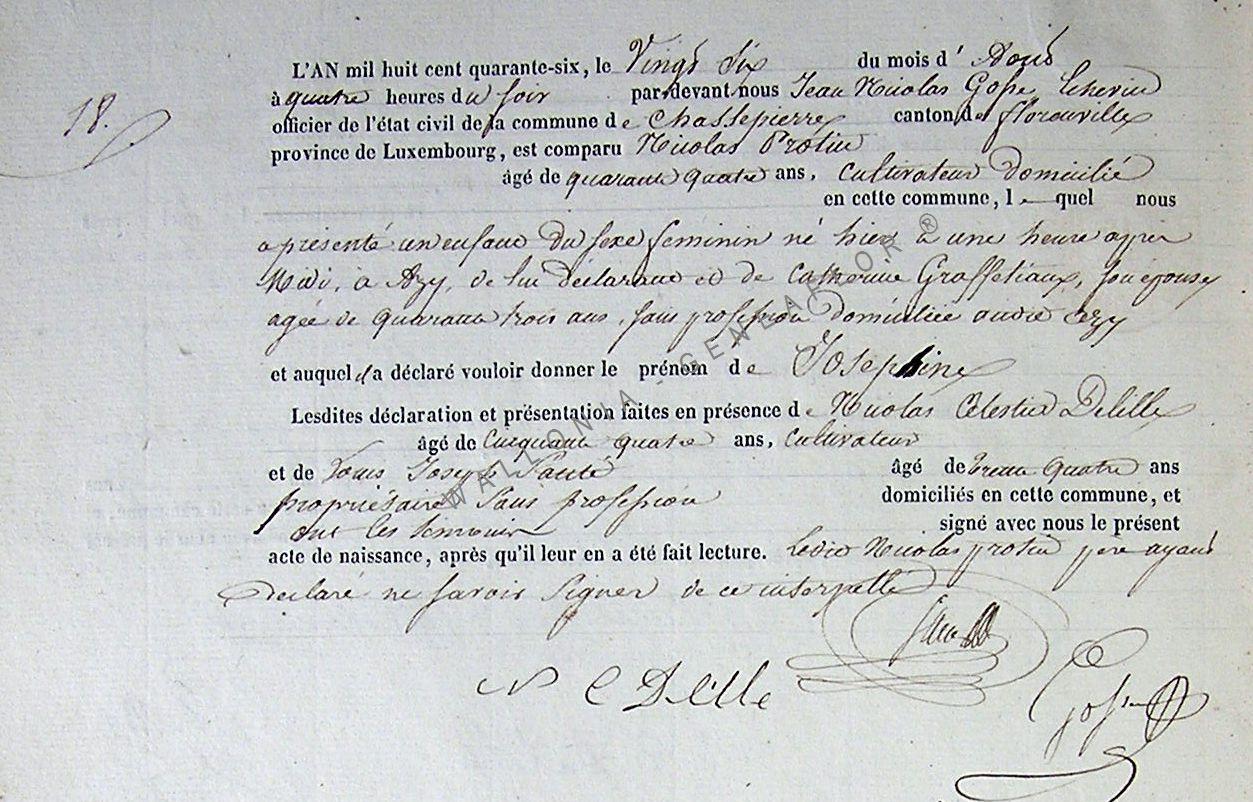 18.
L'AN mil huit cent quarante-six, le Vingt Six du mois d' Aout
à quatre heures du soir par-devant nous Jean Nicolas Gosse, Echevin
officier de l'état civil de la commune de Chassepierre canton de florenville
province de Luxembourg, est comparu Nicolas Protin
âgé de quarante quatre ans, Cultivateur Domicilié
en cette commune, le quel nous
a présenté un enfant du sexe féminin né hier à une heure après
Midi, à Azy, de lui déclarant et de Catherine Graffetiaux, son épouse
agée de quarante trois ans, sans profession domiciliée audit Azy
et auquel il a déclaré vouloir donner le prénom de Josephine
Lesdites déclaration et présentation faites en présence de Nicolas Célestin Delille
âgé de Cinquante quatre ans, Cultivateur
et de Louis Joseph âgé de trente quatre ans
propriétaire Sans profession domiciliés en cette commune, et
ont les temoins signé avec nous le présent
acte de naissance, après qu'il leur en a été fait lecture. Ledit Nicolas protin père ayant
déclaré ne savoir Signer de ce interpellé
N C Delille
Gosse
WALLONIA - GENEAFOR ®